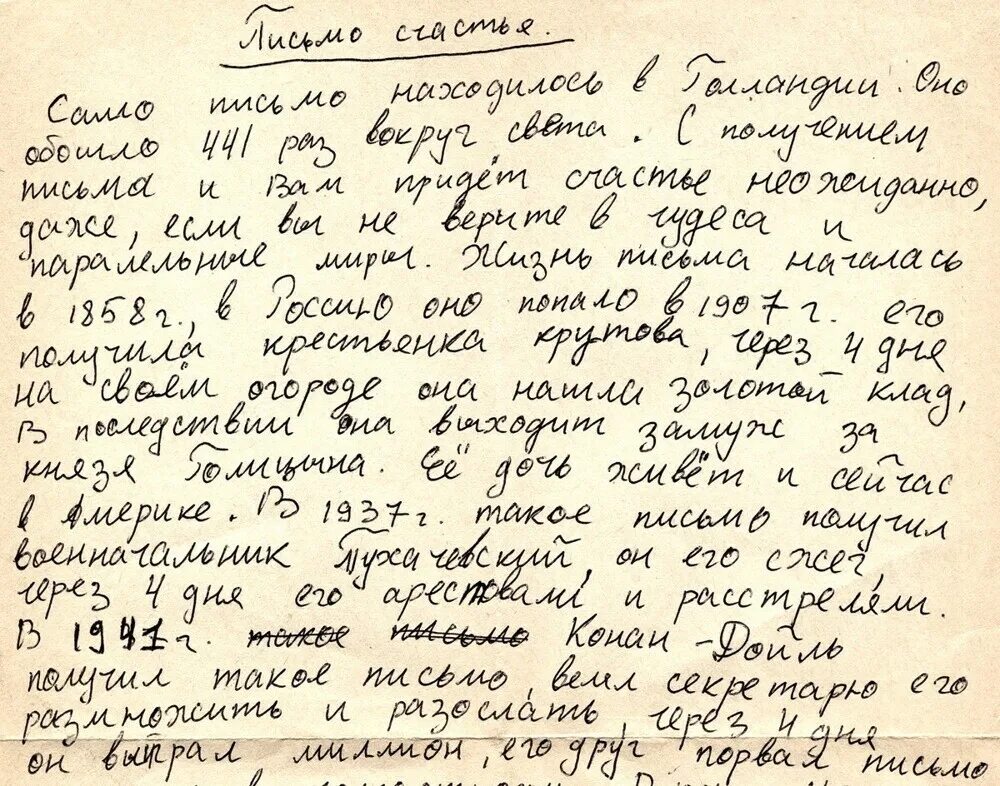 Письмо счастья.
Само письмо находилось в Голландии. Оно
обошло 441 раз вокруг света. С получением
письма и Вам придёт счастье неожиданно,
даже, если вы не верите в чудеса и
паралельные миры. Жизнь письма началась
в 1858 г., в Россию оно попало в 1907 г. его
получила крестьенка крутова, через 4 дня
на своём огороде она нашла золотой клад,
В последствии она выходит замуж за
князя Голицына. Её дочь живёт и сейчас
в Америке. В 1937 г. такое письмо получил
военначальник Тухачевский, он его сжег,
через 4 дня его арестовали и расстреляли.
В 1941 г. такое письмо Конан-Дойль
получил такое письмо, велел секретарю его
размножить и разослать, через 4 дня
он выграл миллион, его друг порвал письмо